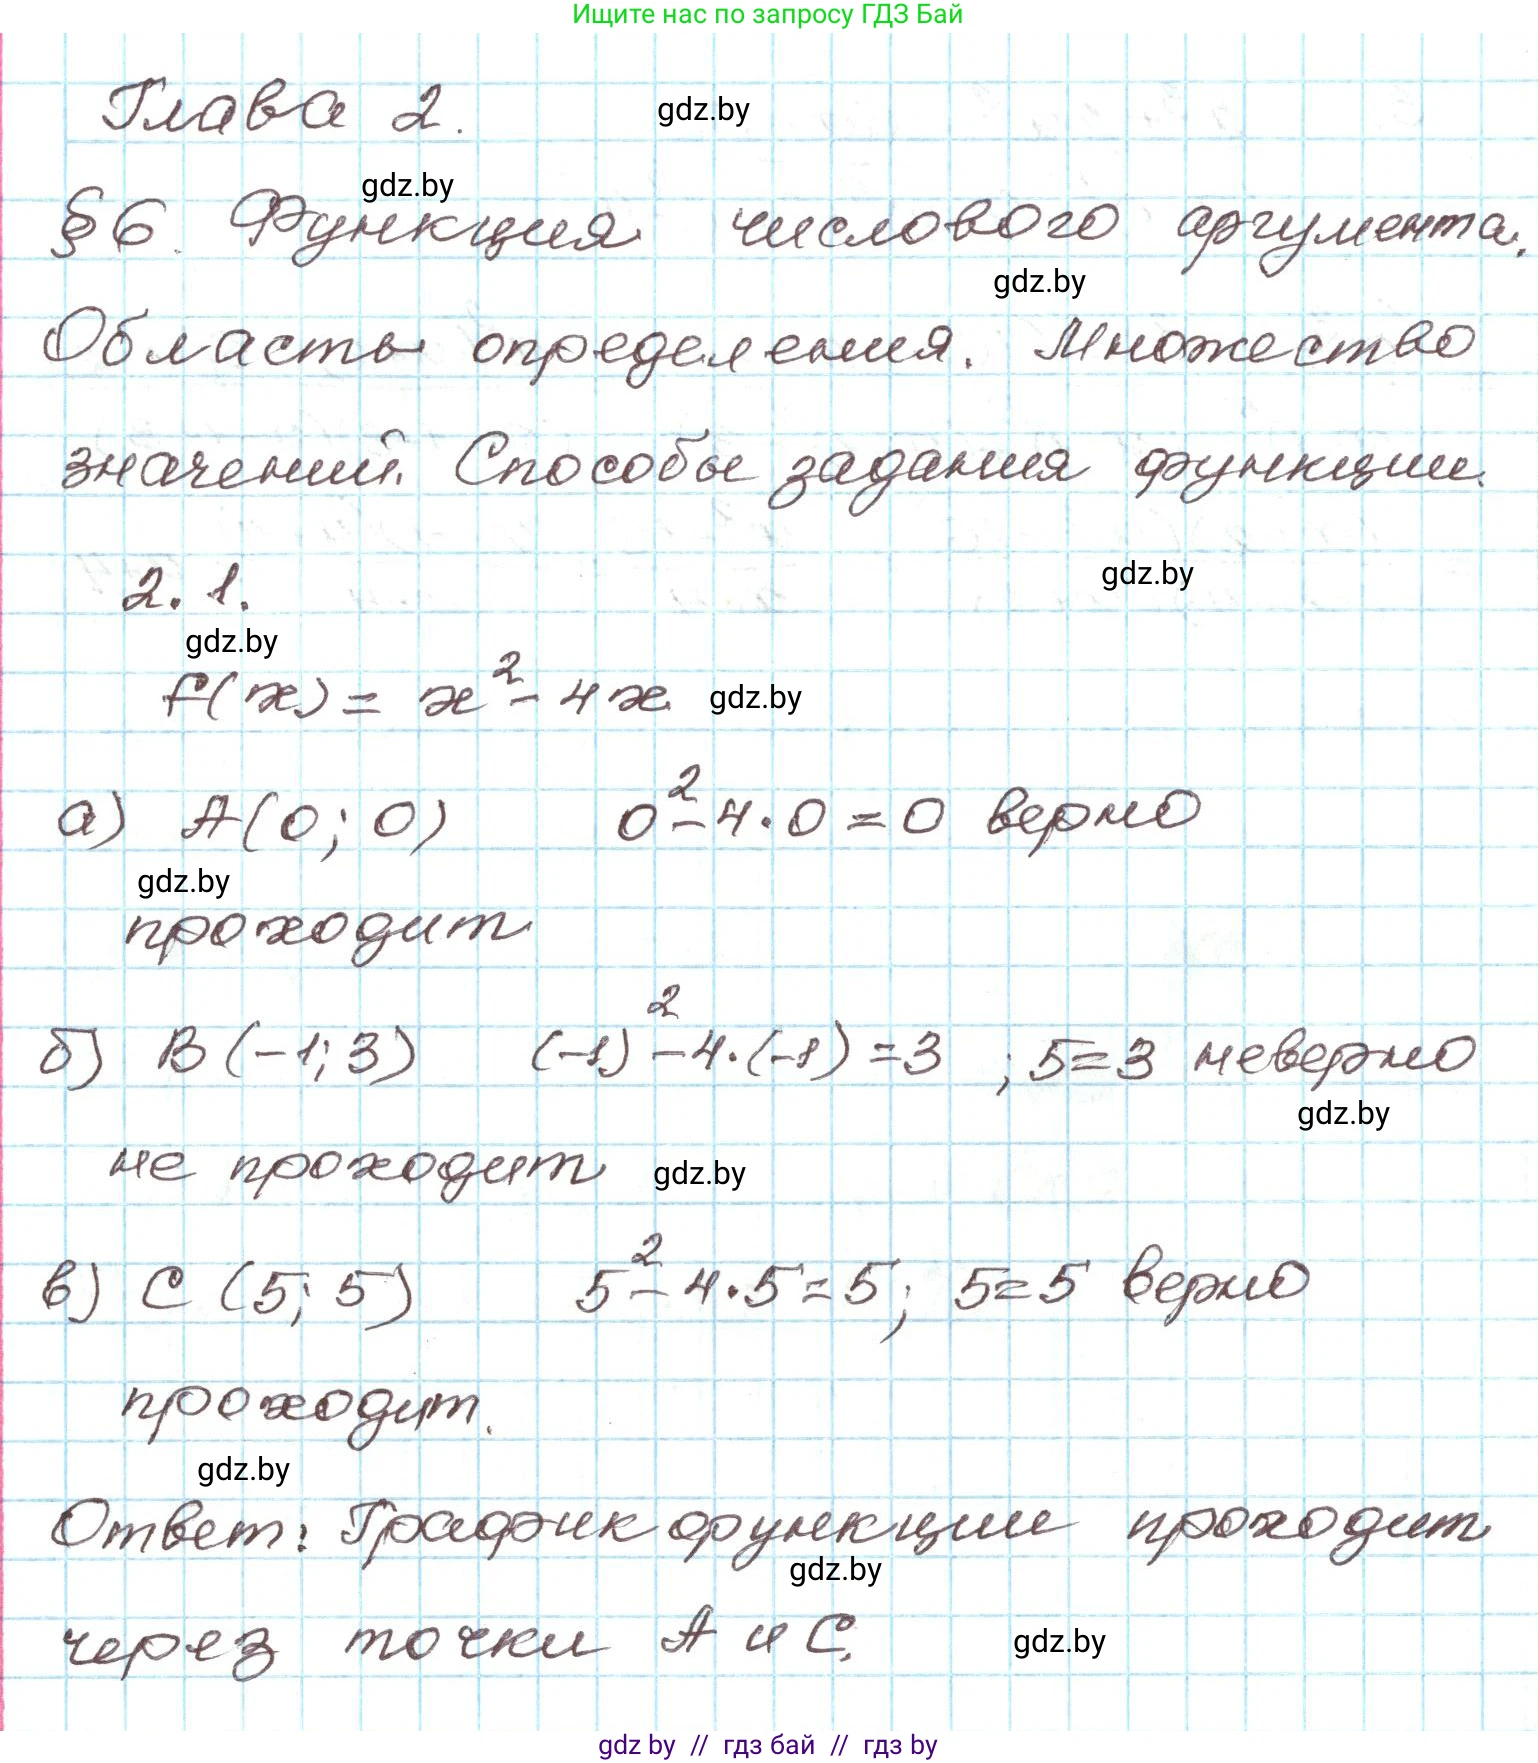 Ищите нас по запросу ГДЗ Бай
Глава 2. gdz.by
gdz.by
§6. Функция числового аргумента.
gdz.by
Область определения. Множество
значений. Способы задания функции.
2.1. gdz.by
gdz.by
f(x) = x² - 4x gdz.by
а) А(0; 0) 0² - 4·0 = 0 верно
gdz.by
проходит
б) В(-1; 3) (-1)² - 4·(-1) = 3 ; 5=3 неверно
gdz.by
не проходит gdz.by
в) С (5; 5) 5² - 4·5 = 5; 5=5 верно
проходит.
gdz.by
Ответ: График функции проходит
gdz.by
через точки А и С. gdz.by
gdz by // гдз бай // гдз by